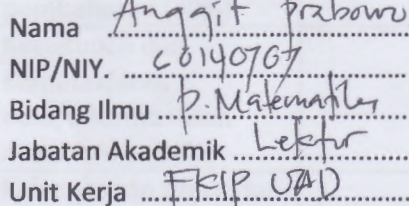 Nama Anggit Prabowo
NIP/NIY. 60140767
Bidang Ilmu P. Matematika
Jabatan Akademik Lektor
Unit Kerja FKIP UAD